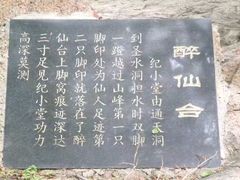 醉仙台
纪小堂由通天洞
到圣水洞担水时双脚
一蹬越过山峰第一只
脚印处为仙人足迹第
二只脚印就落在了醉
仙台上脚窝痕迹深达
三寸足见纪小堂功力
高深莫测